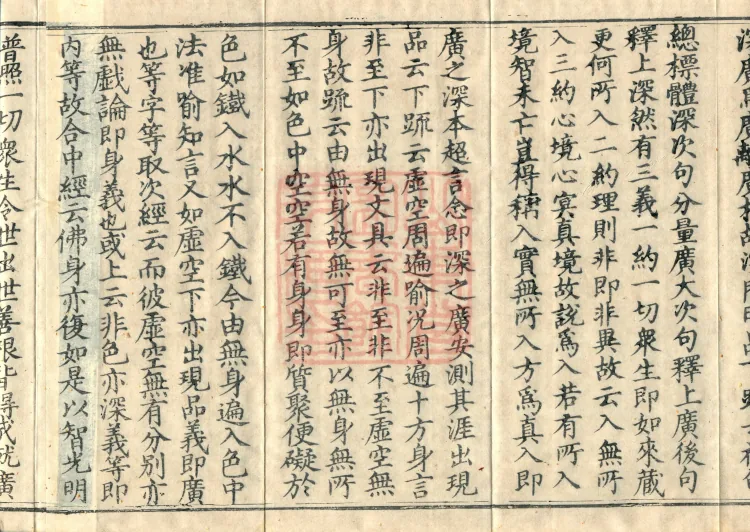 總標體深次句分量廣大次句釋上廣後句
釋上深然有三義一約一切衆生即如來藏
更何所入二約理則非即非異故云入無所
入三約心境心冥真境故說爲入若有所入
境智未亡豈得稱入實無所入方爲真入即
廣之深本超言念即深之廣安測其涯出現
品云下䟽云虛空周遍喻况周遍十方身言
非至下亦出現文具云非至非不至虛空無
身故䟽云由無身故無可至亦以無身無所
不至如色中空空若有身身即質聚便礙於
色如鐵入水水不入鐵今由無身遍入色中
法准喻知言又如虛空下亦出現品義即廣
也等字等取次經云而彼虛空無有分別亦
無戲論即身義也或上云非色亦深義等即
内等故合中經云佛身亦復如是以智光明
普照一切衆生令世出世善根皆得成就廣